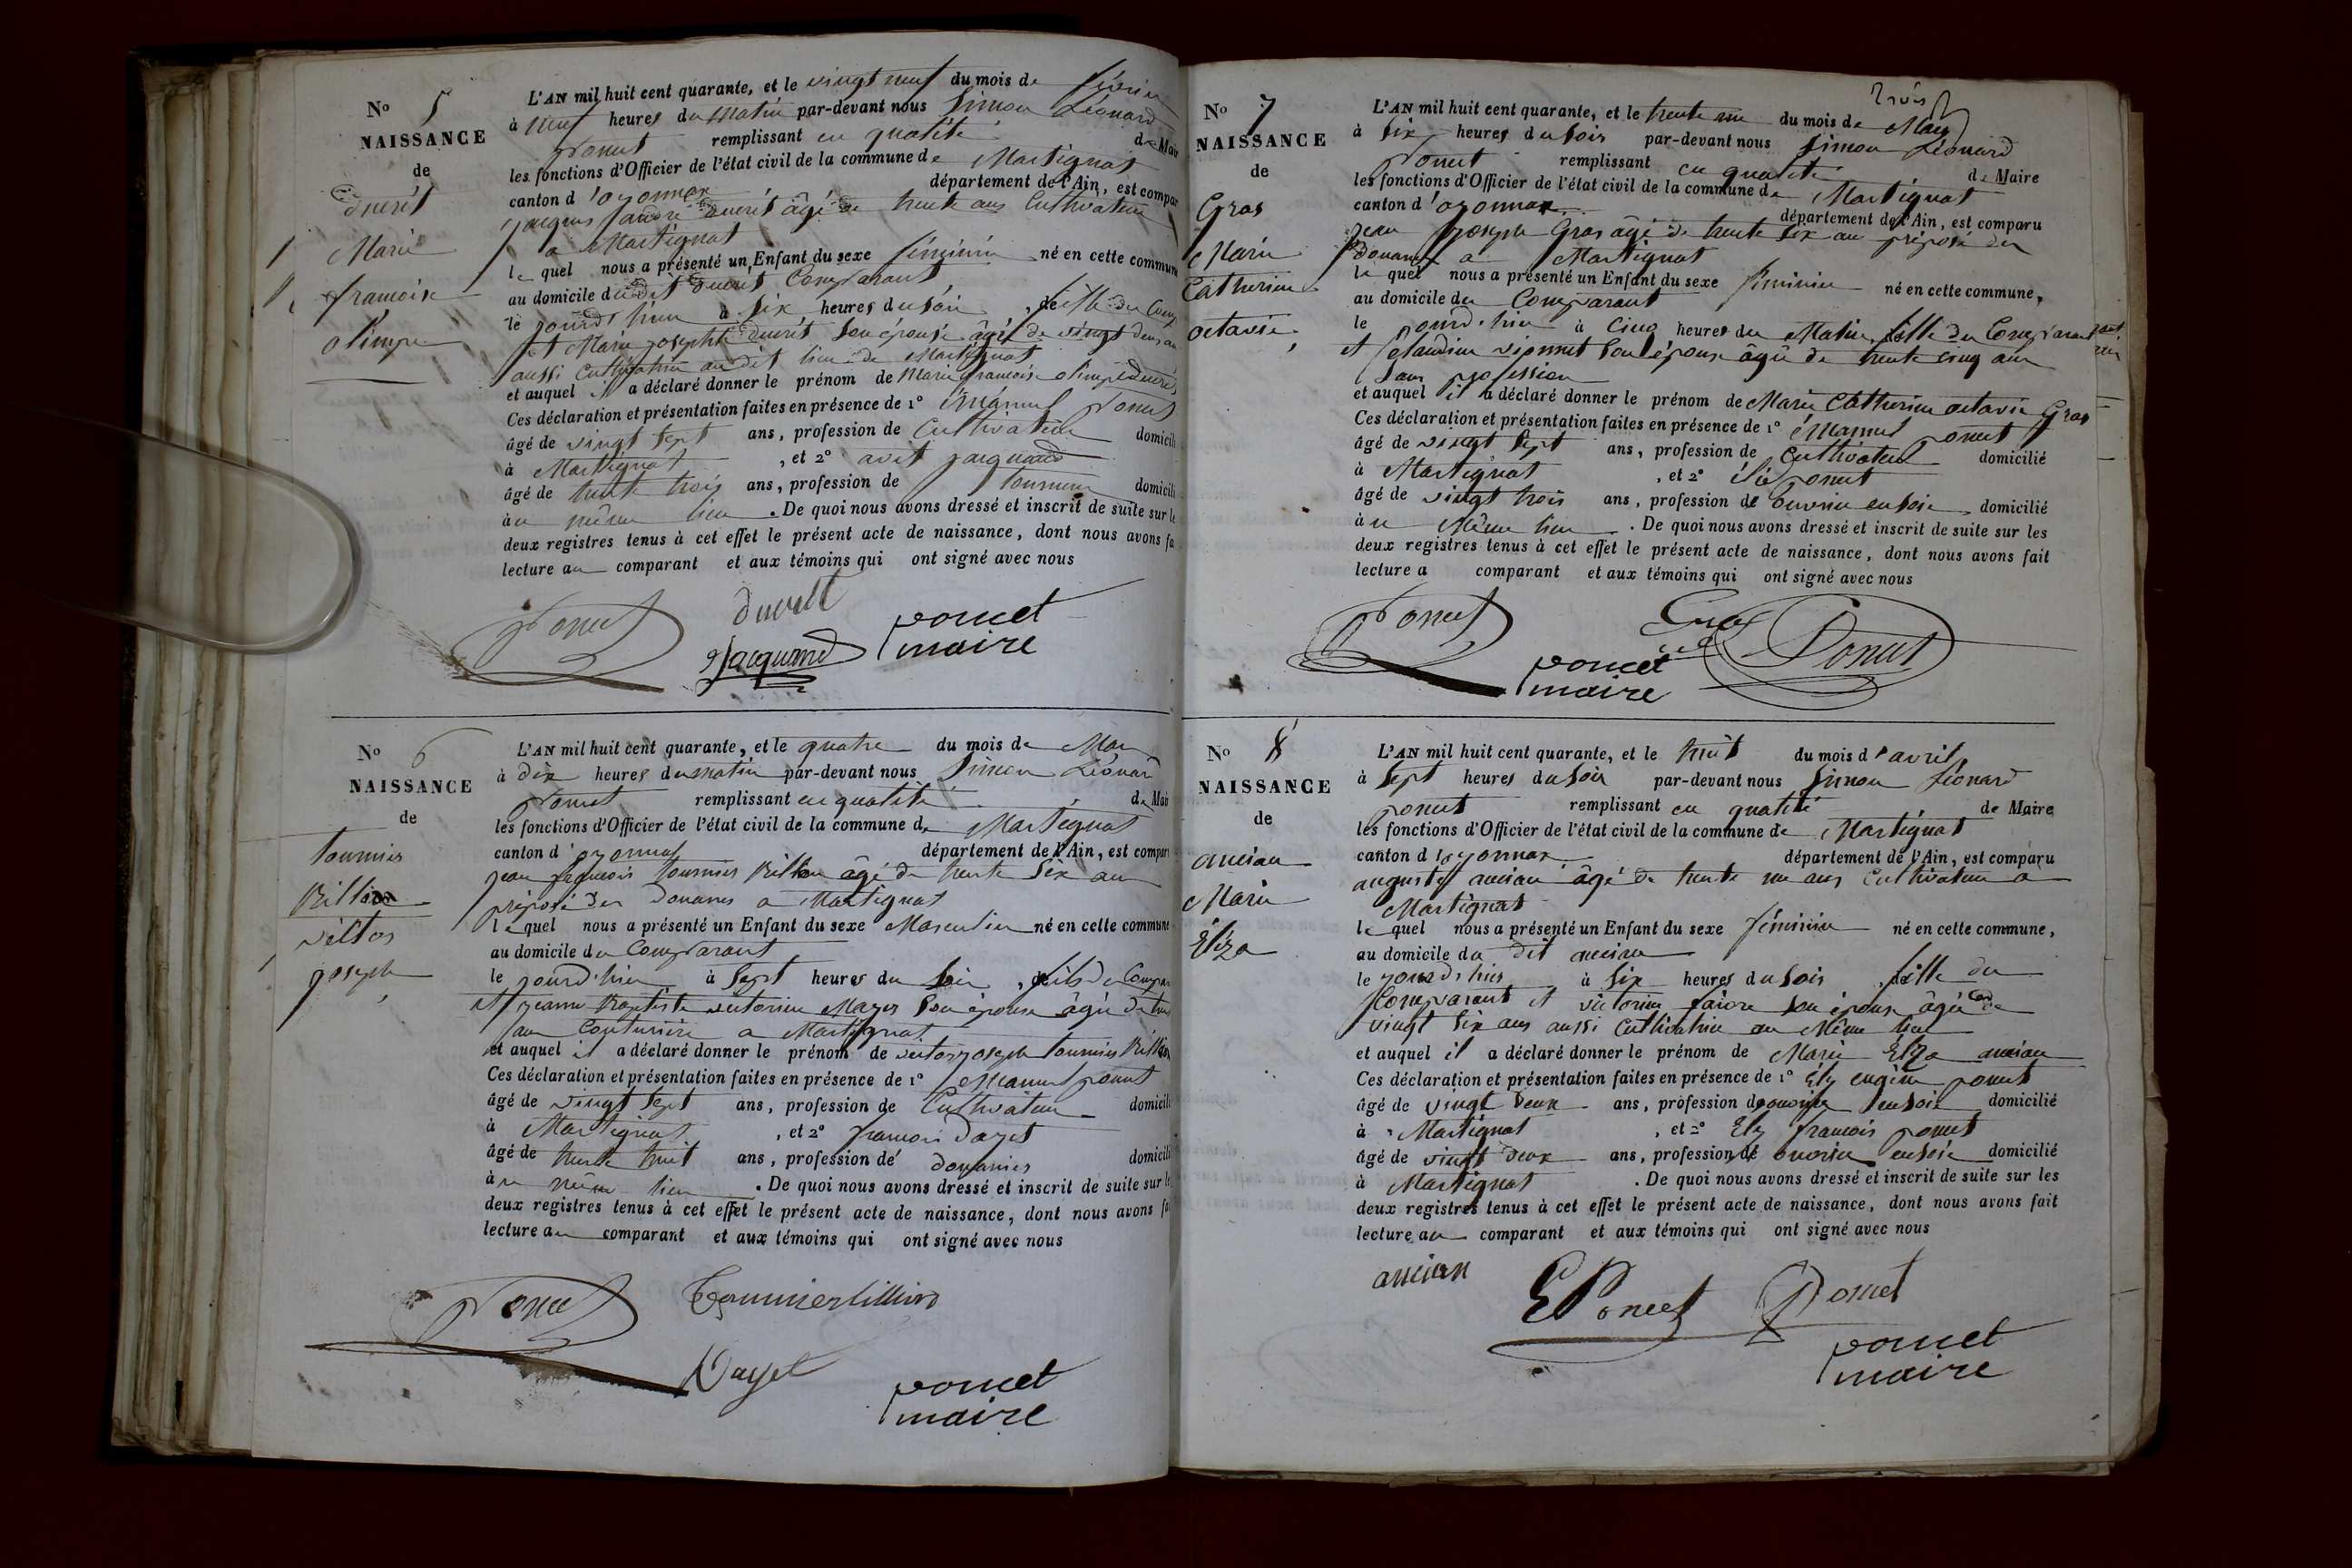 N° 5
NAISSANCE
de
Ducrêt
Marie
francoise
olimpe
L'AN mil huit cent quarante, et le vingt neuf du mois de février
à neuf heures du matin par-devant nous Simon Léonard
Poncet remplissant en qualité de Mair
les fonctions d'Officier de l'état civil de la commune de Martignat
canton d'oyonnax département de l'Ain, est compar
jacques faivre Ducrêt âgé de trente ans Cultivateur
a Martignat
le quel nous a présenté un Enfant du sexe féminin né en cette commune
au domicile du dit Ducrêt Comparant
le jourd'hui à six heures du soir, fille du Comp
et Marie josephte Ducrêt son épouse âgé de vingt deux an
aussi Cultivatrice au dit lieu de Martignat
et auquel il a déclaré donner le prénom de Marie francoise olimpe Ducrêt
Ces déclaration et présentation faites en présence de 1° Emanuel Poncet
âgé de vingt sept ans, profession de Cultivateur domicili
à Martignat, et 2° avit jacquand
âgé de trente trois ans, profession de tourneur domicili
au même lieu. De quoi nous avons dressé et inscrit de suite sur le
deux registres tenus à cet effet le présent acte de naissance, dont nous avons fa
lecture au comparant et aux témoins qui ont signé avec nous
Poncet Ducrêt poncet
Jacquand maire
N° 6
NAISSANCE
de
tournier
Billion
victor
joseph
L'AN mil huit cent quarante, et le quatre du mois de Mars
à dix heures du matin par-devant nous Simon Léonard
Poncet remplissant en qualité de Mair
les fonctions d'Officier de l'état civil de la commune de Martignat
canton d'oyonnax département de l'Ain, est compar
jean francois tournier Billion âgé de trente six ans
préposé des Douanes a Martignat
le quel nous a présenté un Enfant du sexe Masculin né en cette commune
au domicile du Comparant
le jourd'hier à sept heures du soir, fils du Compar
et jeanne Baptiste victorine Mayer son épouse âgée de
ans Couturière a Martignat
et auquel il a déclaré donner le prénom de victor joseph tournier Billion
Ces déclaration et présentation faites en présence de 1° Emanuel poncet
âgé de vingt sept ans, profession de Cultivateur domicili
à Martignat, et 2° francois Dayet
âgé de trente huit ans, profession de douanier domicili
au même lieu. De quoi nous avons dressé et inscrit de suite sur le
deux registres tenus à cet effet le présent acte de naissance, dont nous avons fa
lecture au comparant et aux témoins qui ont signé avec nous
Poncet Tournierbillion
Dayet poncet
maire
N° 7
NAISSANCE
de
Gras
Marie
Catherine
octavie
trois
L'AN mil huit cent quarante, et le trente un du mois de Mars
à six heures du soir par-devant nous Simon Léonard
Poncet remplissant en qualité de Maire
les fonctions d'Officier de l'état civil de la commune de Martignat
canton d'oyonnax département de l'Ain, est comparu
jean joseph Gras âgé de trente six ans préposé des
Douanes a Martignat
le quel nous a présenté un Enfant du sexe féminin né en cette commune,
au domicile du Comparant
le jourd'hui à cinq heures du Matin fille du Comparant
et Claudine vionnet son épouse âgée de trente cinq ans
sans profession
et auquel il a déclaré donner le prénom de Marie Catherine octavie Gras
Ces déclaration et présentation faites en présence de 1° Emanuel poncet
âgé de vingt sept ans, profession de Cultivateur domicilié
à Martignat, et 2° Elie poncet
âgé de vingt trois ans, profession de ouvrier en soie domicilié
au Même lieu. De quoi nous avons dressé et inscrit de suite sur les
deux registres tenus à cet effet le présent acte de naissance, dont nous avons fait
lecture a comparant et aux témoins qui ont signé avec nous
Poncet Gras Poncet
poncet
maire
N° 8
NAISSANCE
de
ancian
Marie
Eliza
L'AN mil huit cent quarante, et le huit du mois d'avril
à sept heures du soir par-devant nous Simon Léonard
poncet remplissant en qualité de Maire
les fonctions d'Officier de l'état civil de la commune de Martignat
canton d'oyonnax département de l'Ain, est comparu
auguste ancian âgé de trente un ans Cultivateur a
Martignat
le quel nous a présenté un Enfant du sexe féminin né en cette commune,
au domicile du dit ancian
le jourd'hier à six heures du soir fille du
Comparant et victorine faivre son épouse âgée de
vingt six ans aussi Cultivatrice au Même lieu
et auquel il a déclaré donner le prénom de Marie Eliza ancian
Ces déclaration et présentation faites en présence de 1° Ely eugène poncet
âgé de vingt deux ans, profession d'ouvrier en soie domicilié
à Martignat, et 2° Ely francois poncet
âgé de vingt deux ans, profession de ouvrier en soie domicilié
à Martignat. De quoi nous avons dressé et inscrit de suite sur les
deux registres tenus à cet effet le présent acte de naissance, dont nous avons fait
lecture au comparant et aux témoins qui ont signé avec nous
ancian EPoncet Poncet
poncet
maire